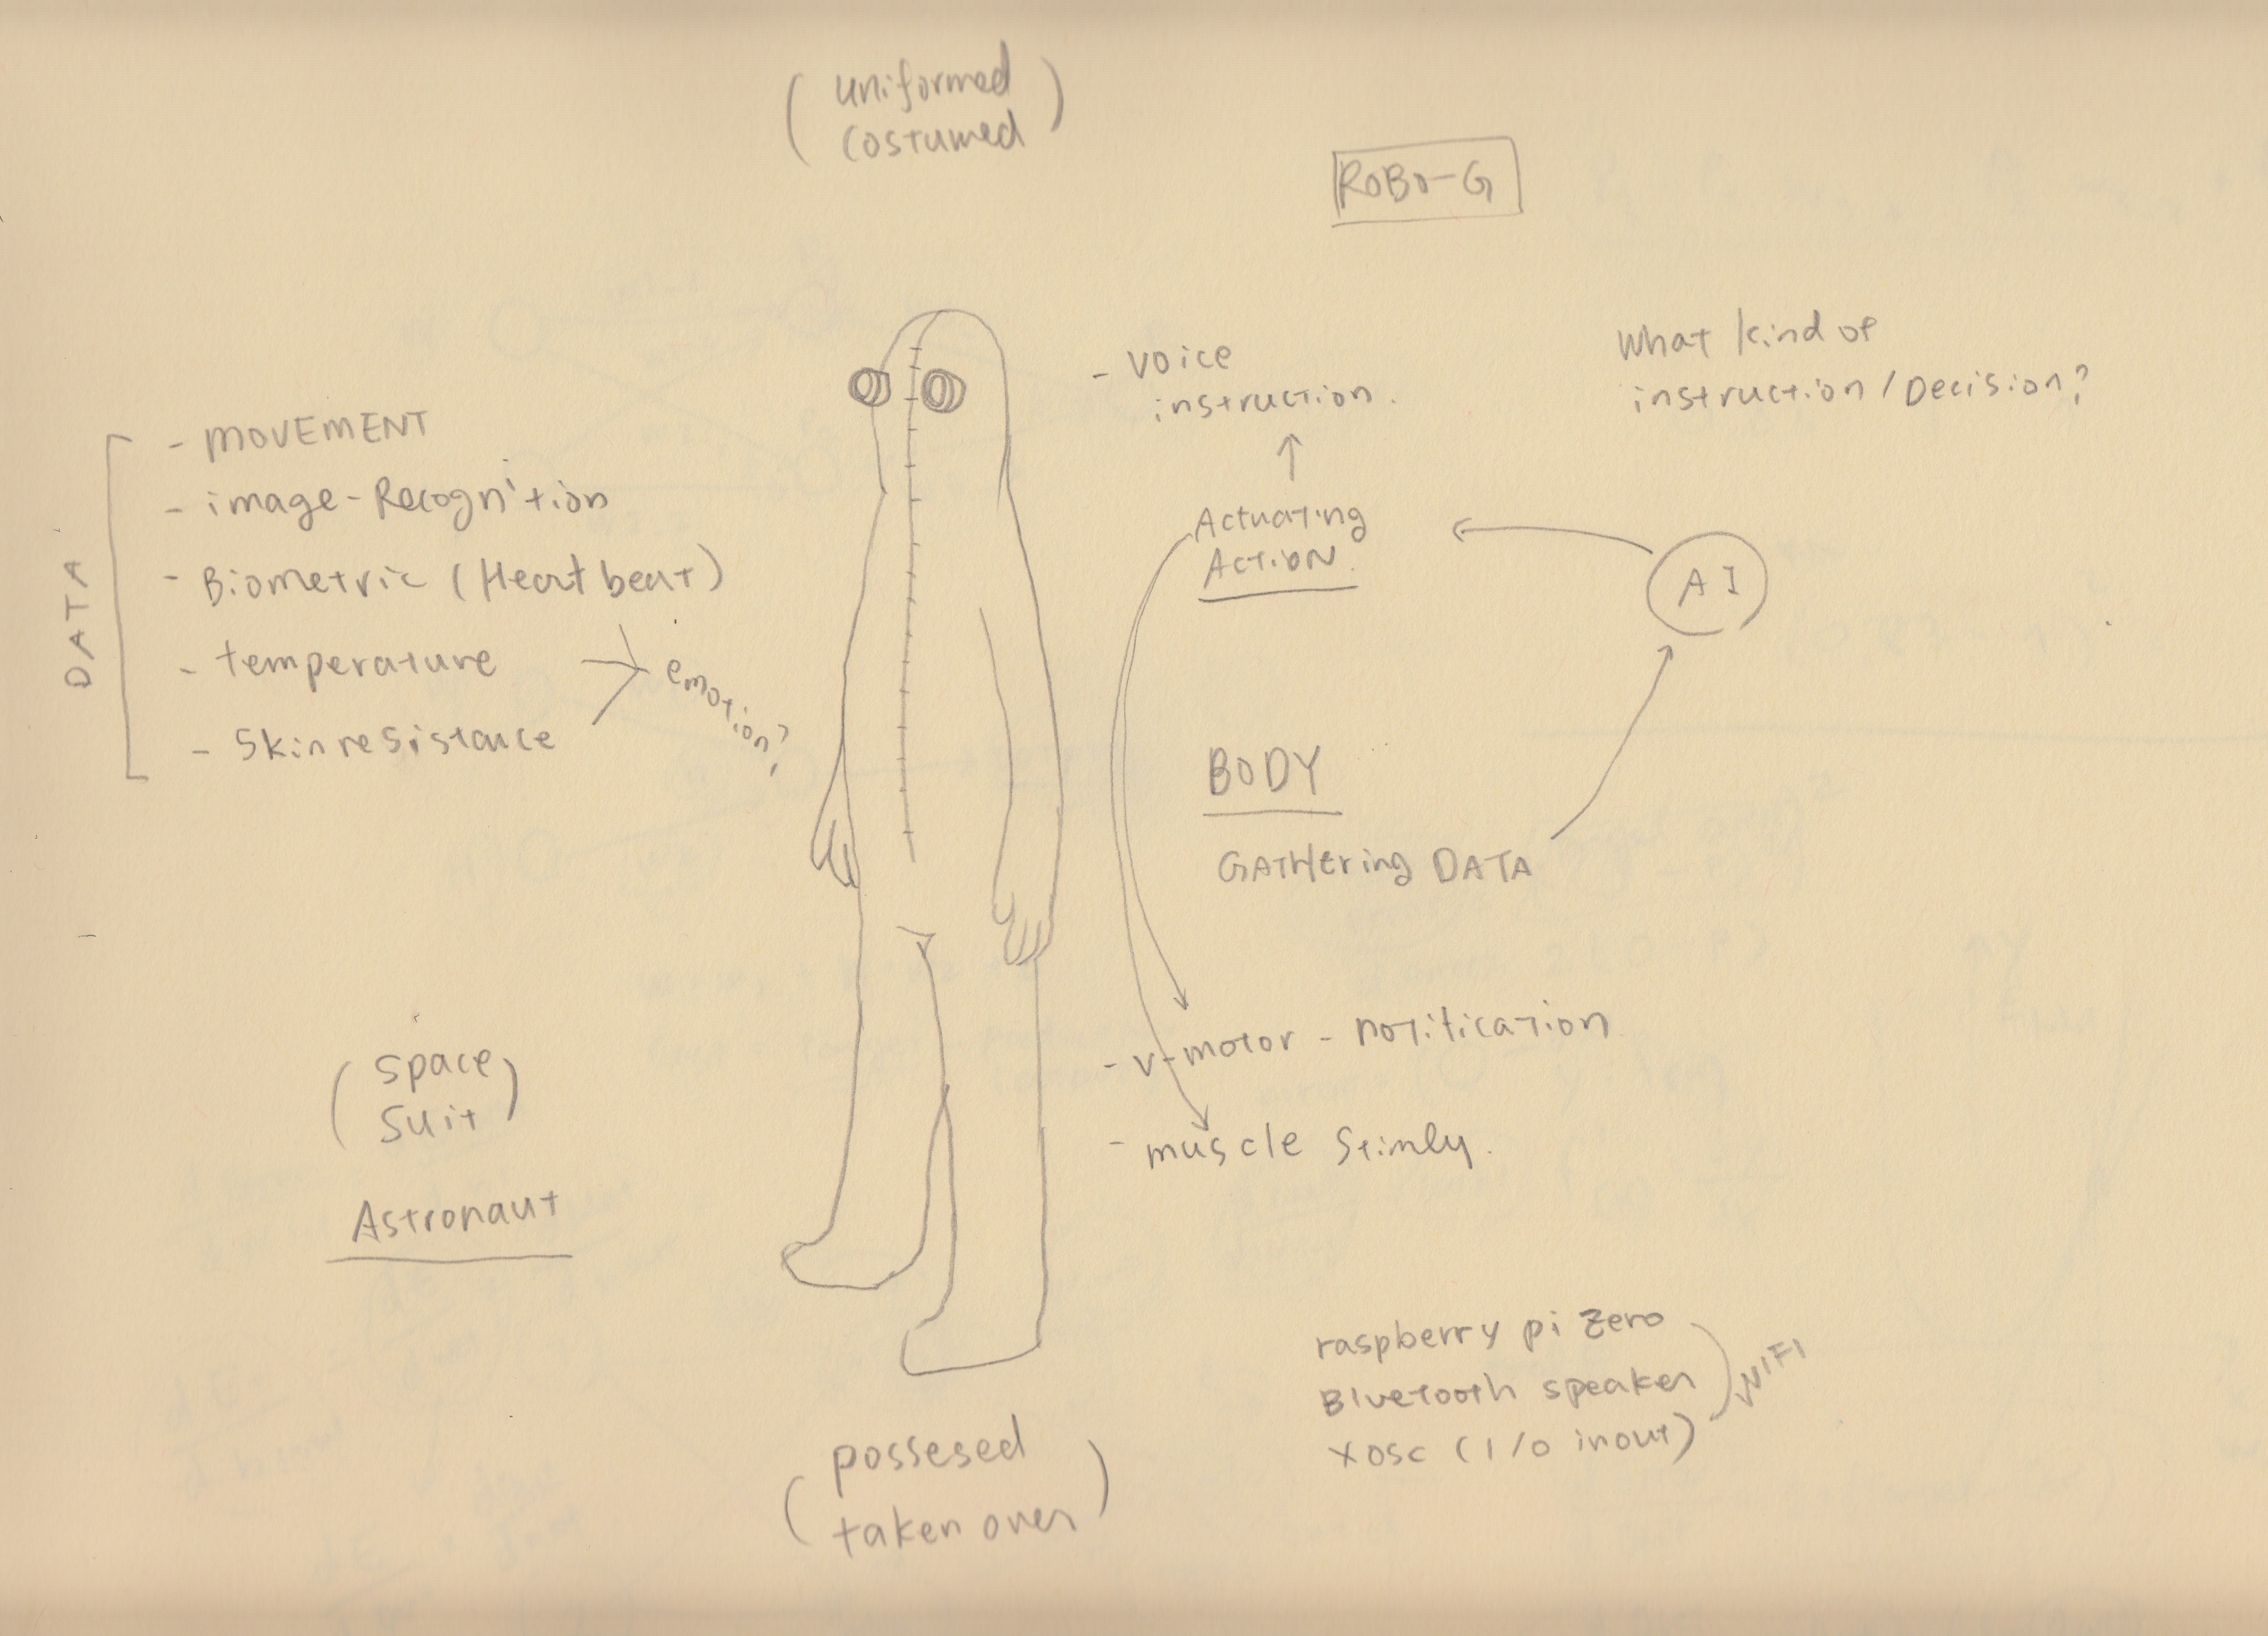 (uniformed
costumed)
ROBO-G
DATA
- MOVEMENT
- image-Recognition
- Biometric (Heart beat)
- temperature
- Skin resistance
emotion?
- voice
instruction.
What kind of
instruction / Decision?
Actuating
ACTION.
AI
BODY
GATHering DATA
- v-motor - notification
- muscle
(space
suit)
Astronaut
raspberry pi Zero
Bluetooth speaker
xosc (I/O inout)
WIFI
(possesed
taken over)